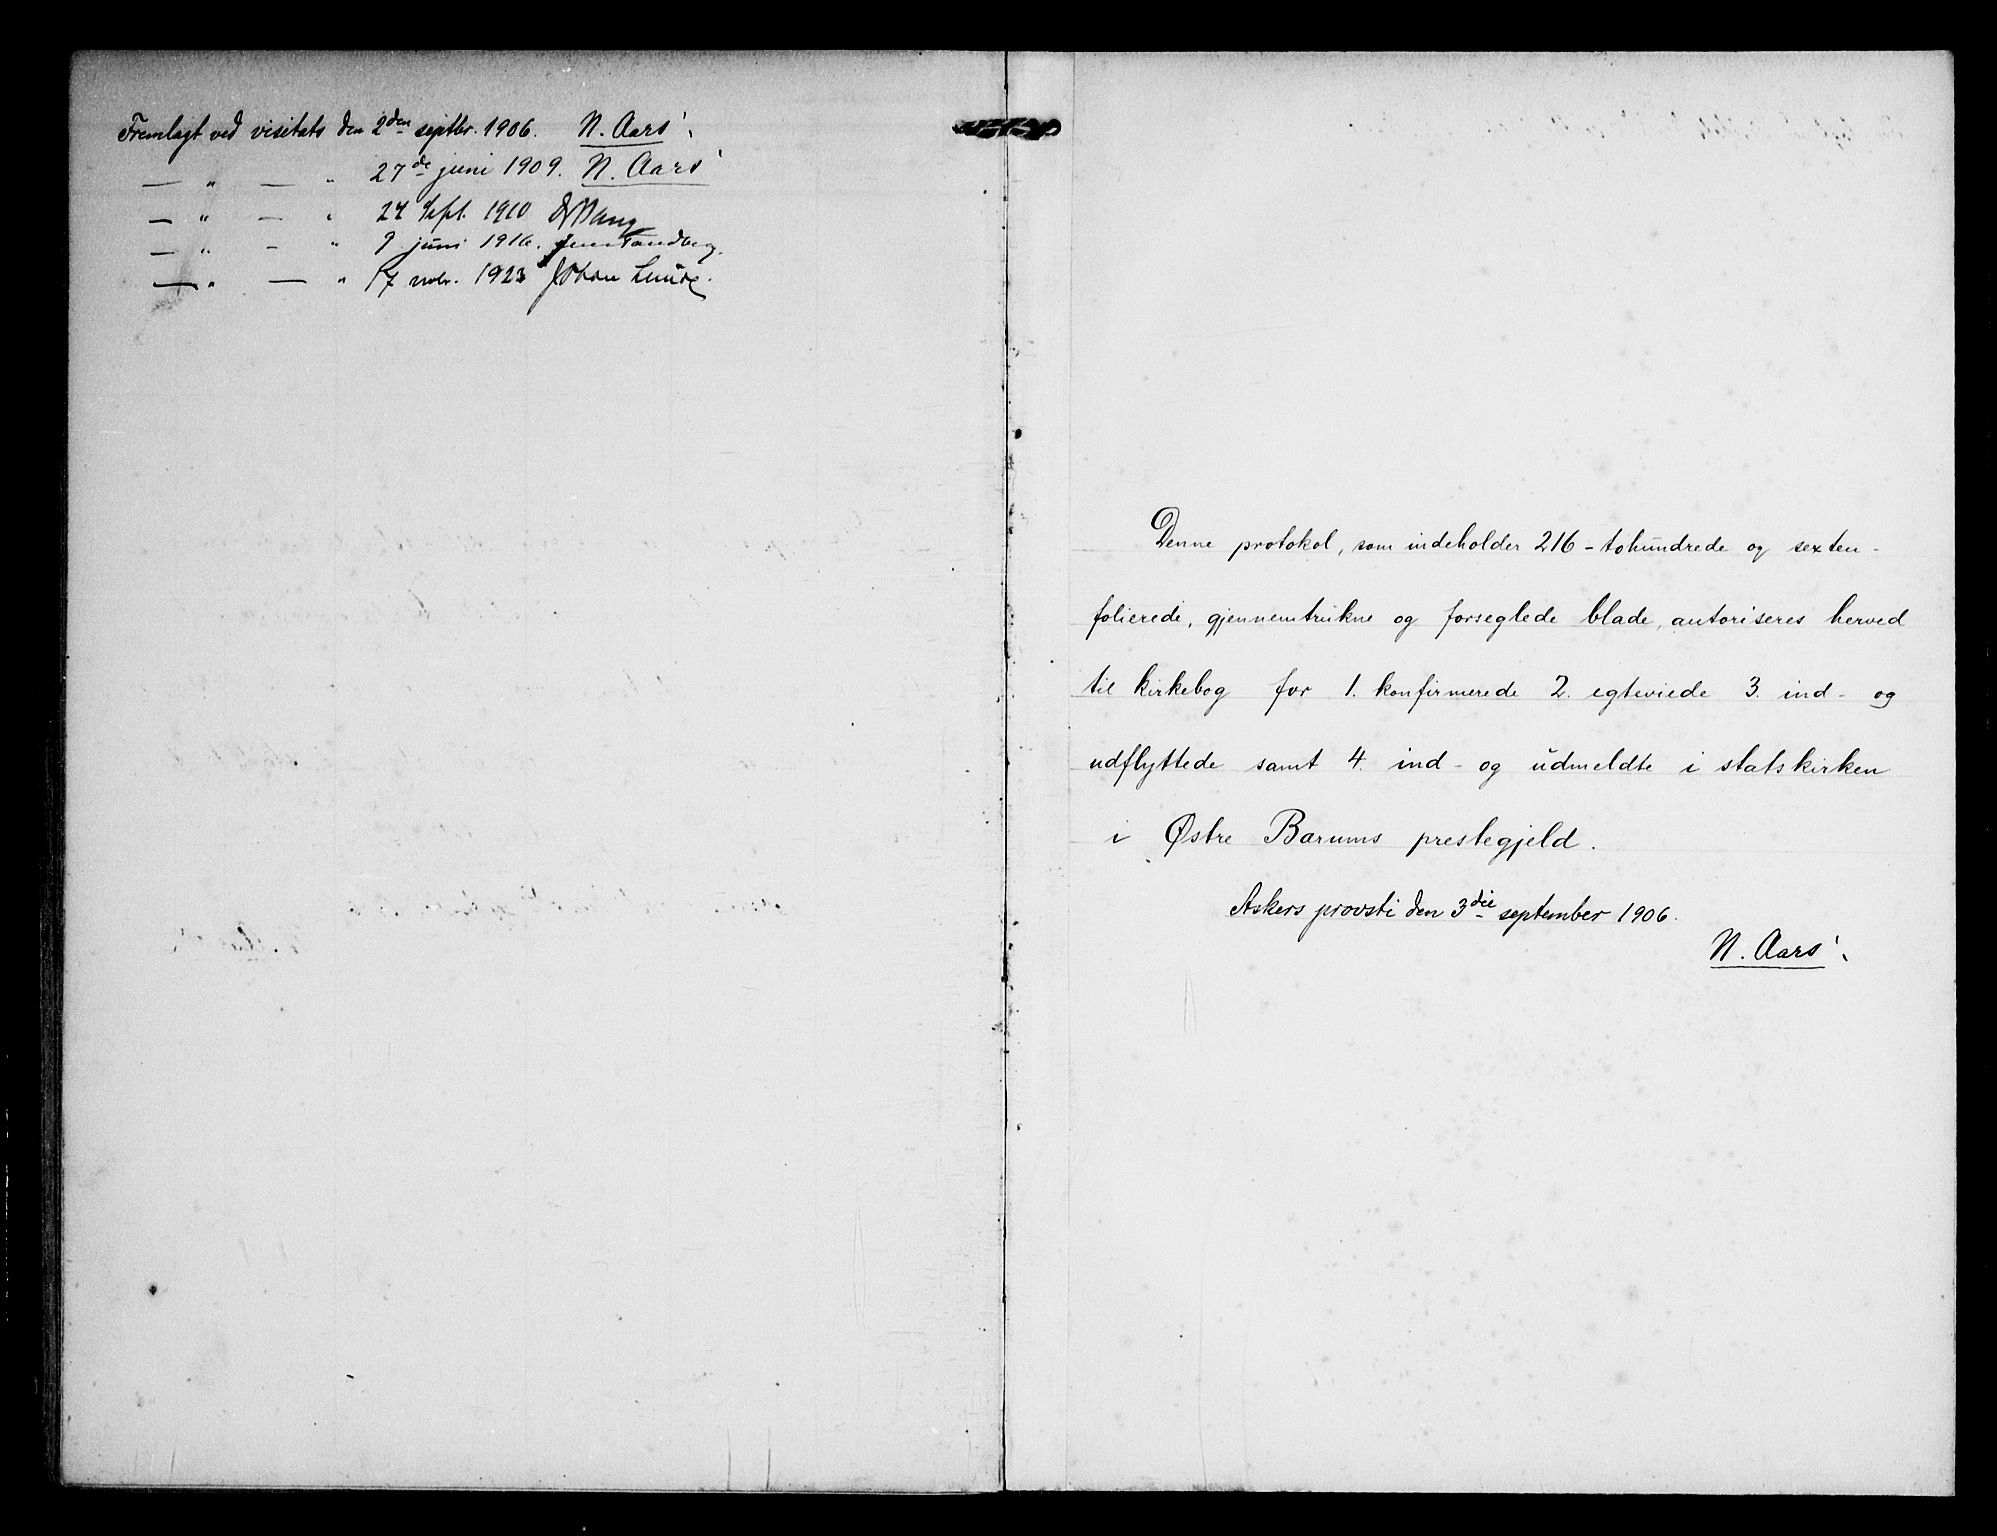 Fremlagt ved visitats den 2den septbr. 1906. N. Aars
— " — " 27de juni 1909. N. Aars
— " — " 24 Sept. 1910
— " — " 9 juni 1916. Jens Tandberg.
— " — " 17 novbr. 1923 Johan Lunde.
Denne protokol, som indeholder 216 - tohundrede og sexten -
folierede, gjennemtrukne og forseglede blade, autoriseres herved
til kirkebog for 1. konfirmerede 2. egteviede 3. ind- og
udflyttede samt 4. ind- og udmeldte i statskirken
i Østre Bærums prestegjeld.
Askers provsti den 3die september 1906.
N. Aars